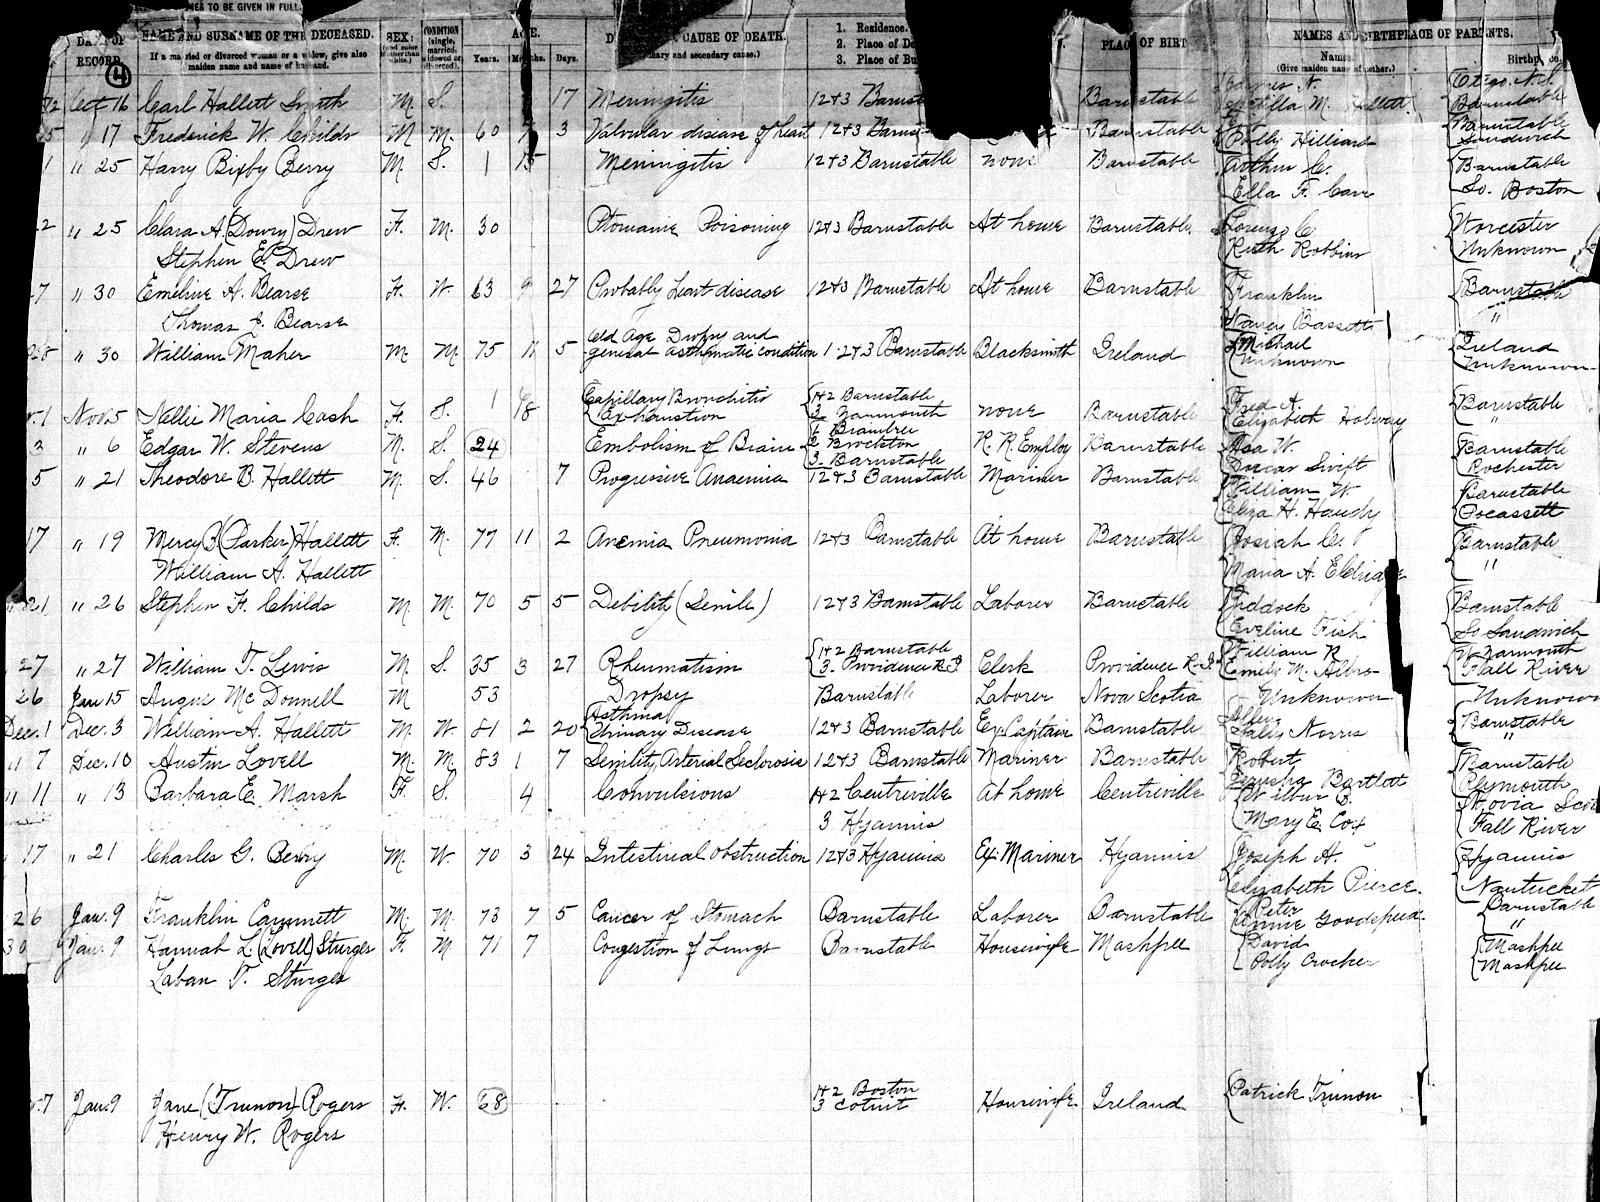 NAMES TO BE GIVEN IN FULL.
DATE OF RECORD. NAME AND SURNAME OF THE DECEASED. SEX; CONDITION AGE. CAUSE OF DEATH. 1. Residence. PLACE OF BIRTH NAMES AND BIRTHPLACE OF PARENTS.
If a married or divorced woman or a widow, give also maiden name and name of husband. (and color if other than white.) (single, married, widowed or divorced). Years. Months. Days. and secondary cause.) 2. Place of 3. Place of Names. (Give maiden name of mother.) Birthplace.
4
12 Oct 16 Carl Hallett Smith M. S. 17 Meningitis 12&3 Barnst Barnstable M. Hallett Barnstable
15 " 17 Frederick W. Childs M M. 60 3 Valvular disease of heart 12&3 Barns Barnstable Polly Hilliard Barnstable Sandwich
1 " 25 Harry Bixby Berry M. S. 1 Meningitis 12&3 Barnstable none Barnstable Arthur C. Barnstable
Ella F. Carr So. Boston
2 " 25 Clara A. (Dowry) Drew F. M. 30 Ptomaine Poisoning 12&3 Barnstable At home Barnstable Lorenzo C Worcester
Stephen E. Drew Ruth Robbins Unknown
7 " 30 Emeline A. Bearse F. W. 63 9 27 Probably Heart disease 12&3 Barnstable At home Barnstable Franklin Barnstable
Thomas Bearse Nancy Bassett "
28 " 30 William Maher M. M. 75 11 5 Old Age Dropsy and general asthmatic condition 1-2&3 Barnstable Blacksmith Ireland Michael Ireland
Unknown Unknown
1 Nov 5 Nellie Maria Cash F. S. 1 18 Capillary Bronchitis Exhaustion 1&2 Barnstable 3. Yarmouth none Barnstable Fred A. Barnstable
Elizabeth "
2 " 6 Edgar W. Stevens M. S. 24 Embolism of Brain 1. Braintree 2 Brockton 3. Barnstable R. R. Employ Barnstable Asa W. Barnstable
Dorcas Swift Rochester
5 " 21 Theodore B. Hallett M. S. 46 7 Progressive Anaemia 12&3 Barnstable Mariner Barnstable William W Barnstable
Eliza H. Handy Pocassett
17 " 19 Mercy B (Parker) Hallett F. M. 77 11 2 Anemia Pneumonia 12&3 Barnstable At home Barnstable Josiah C. Barnstable
William A. Hallett Maria A. Eldridge "
21 " 26 Stephen F. Childs M. M. 70 5 5 Debility (Senile) 12&3 Barnstable Laborer Barnstable Braddock Barnstable
Eveline Fish So Sandwich
27 " 27 William T. Lewis M. S. 35 3 27 Rheumatism 1&2 Barnstable 3. Providence R.I. Clerk Providence R.I. William R Yarmouth
Emily M. Albro Fall River
26 Jan 15 Angus McDonnell M 53 Dropsy Barnstable Laborer Nova Scotia Unknown Unknown
Dec. 1 Dec. 3 William A. Hallett M. W. 81 2 20 Asthma Urinary Disease 12&3 Barnstable Ex Captain Barnstable Allen Barnstable
Sally Norris "
" 7 Dec. 10 Austin Lovell M. M. 83 1 7 Senility, Arterial Sclerosis 12&3 Barnstable Mariner Barnstable Robert Barnstable
Jerusha Bartlett Plymouth
" 11 " 13 Barbara E. Marsh F. S. 4 Convulsions 1&2 Centreville At home Centreville Wilbur B. Novia Scot
3 Hyannis Mary E. Cox Fall River
17 " 21 Charles G. Berry M. W. 70 3 24 Intestinal Obstruction 12&3 Hyannis Ex. Mariner Hyannis Joseph H. Hyannis
Elizabeth Pierce. Nantucket
26 Jan. 9 Franklin Cammett M. M. 73 7 5 Cancer of Stomach Barnstable Laborer Barnstable Peter Barnstable
Annie Goodspeed "
30 Jan. 9 Hannah L (Lovell) Sturges F. M 71 7 Congestion of Lungs Barnstable Housewife Mashpee David Mashpee
Laban T. Sturges Polly Crocker Mashpee
7 Jan. 9 Jane (Trunon) Rogers F. W. 68 1&2 Boston 3 Cotuit Housewife Ireland Patrick Trunon
Henry W. Rogers